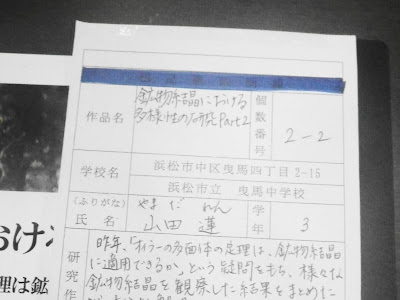 作品名
鉱物結晶における
多様性の研究 Part2
個数番号
2-2
学校名
浜松市中区曳馬四丁目2-15
浜松市立 曳馬中学校
(ふりがな) やまだ れん
氏名 山田 蓮
学年 3
昨年、「オイラーの多面体の定理は、鉱物結晶
に適用できるか」という疑問をもち、様々な
鉱物結晶を観察した結果をまとめた
研究作
おける
理は鉱